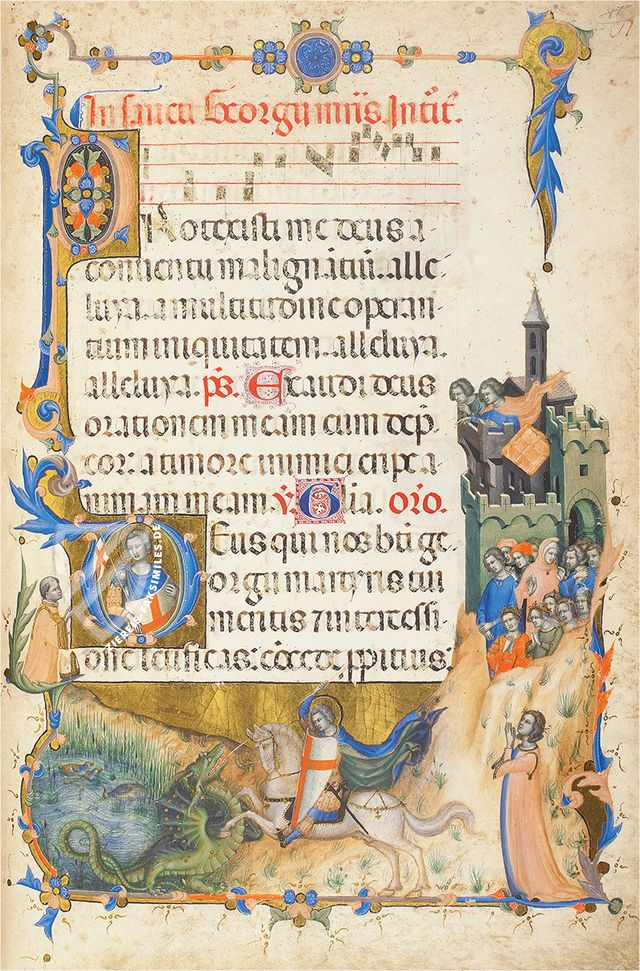 In sancti Georgii mris. Introit.
Protexisti me deus a
conventu malignatiu. alle
luya. a multitudine operan
tium iniquitatem. alleluya.
alleluya. ps. Exaudi deus
orationem meam cum dep
cor. a timore inimici eripe a
nimam meam. V. Gloria. oro.
Deus qui nos bti ge
orgii martyris tui
meritis 7 intercessi
one letificas: concede ppitius:
FACSIMILES.DE